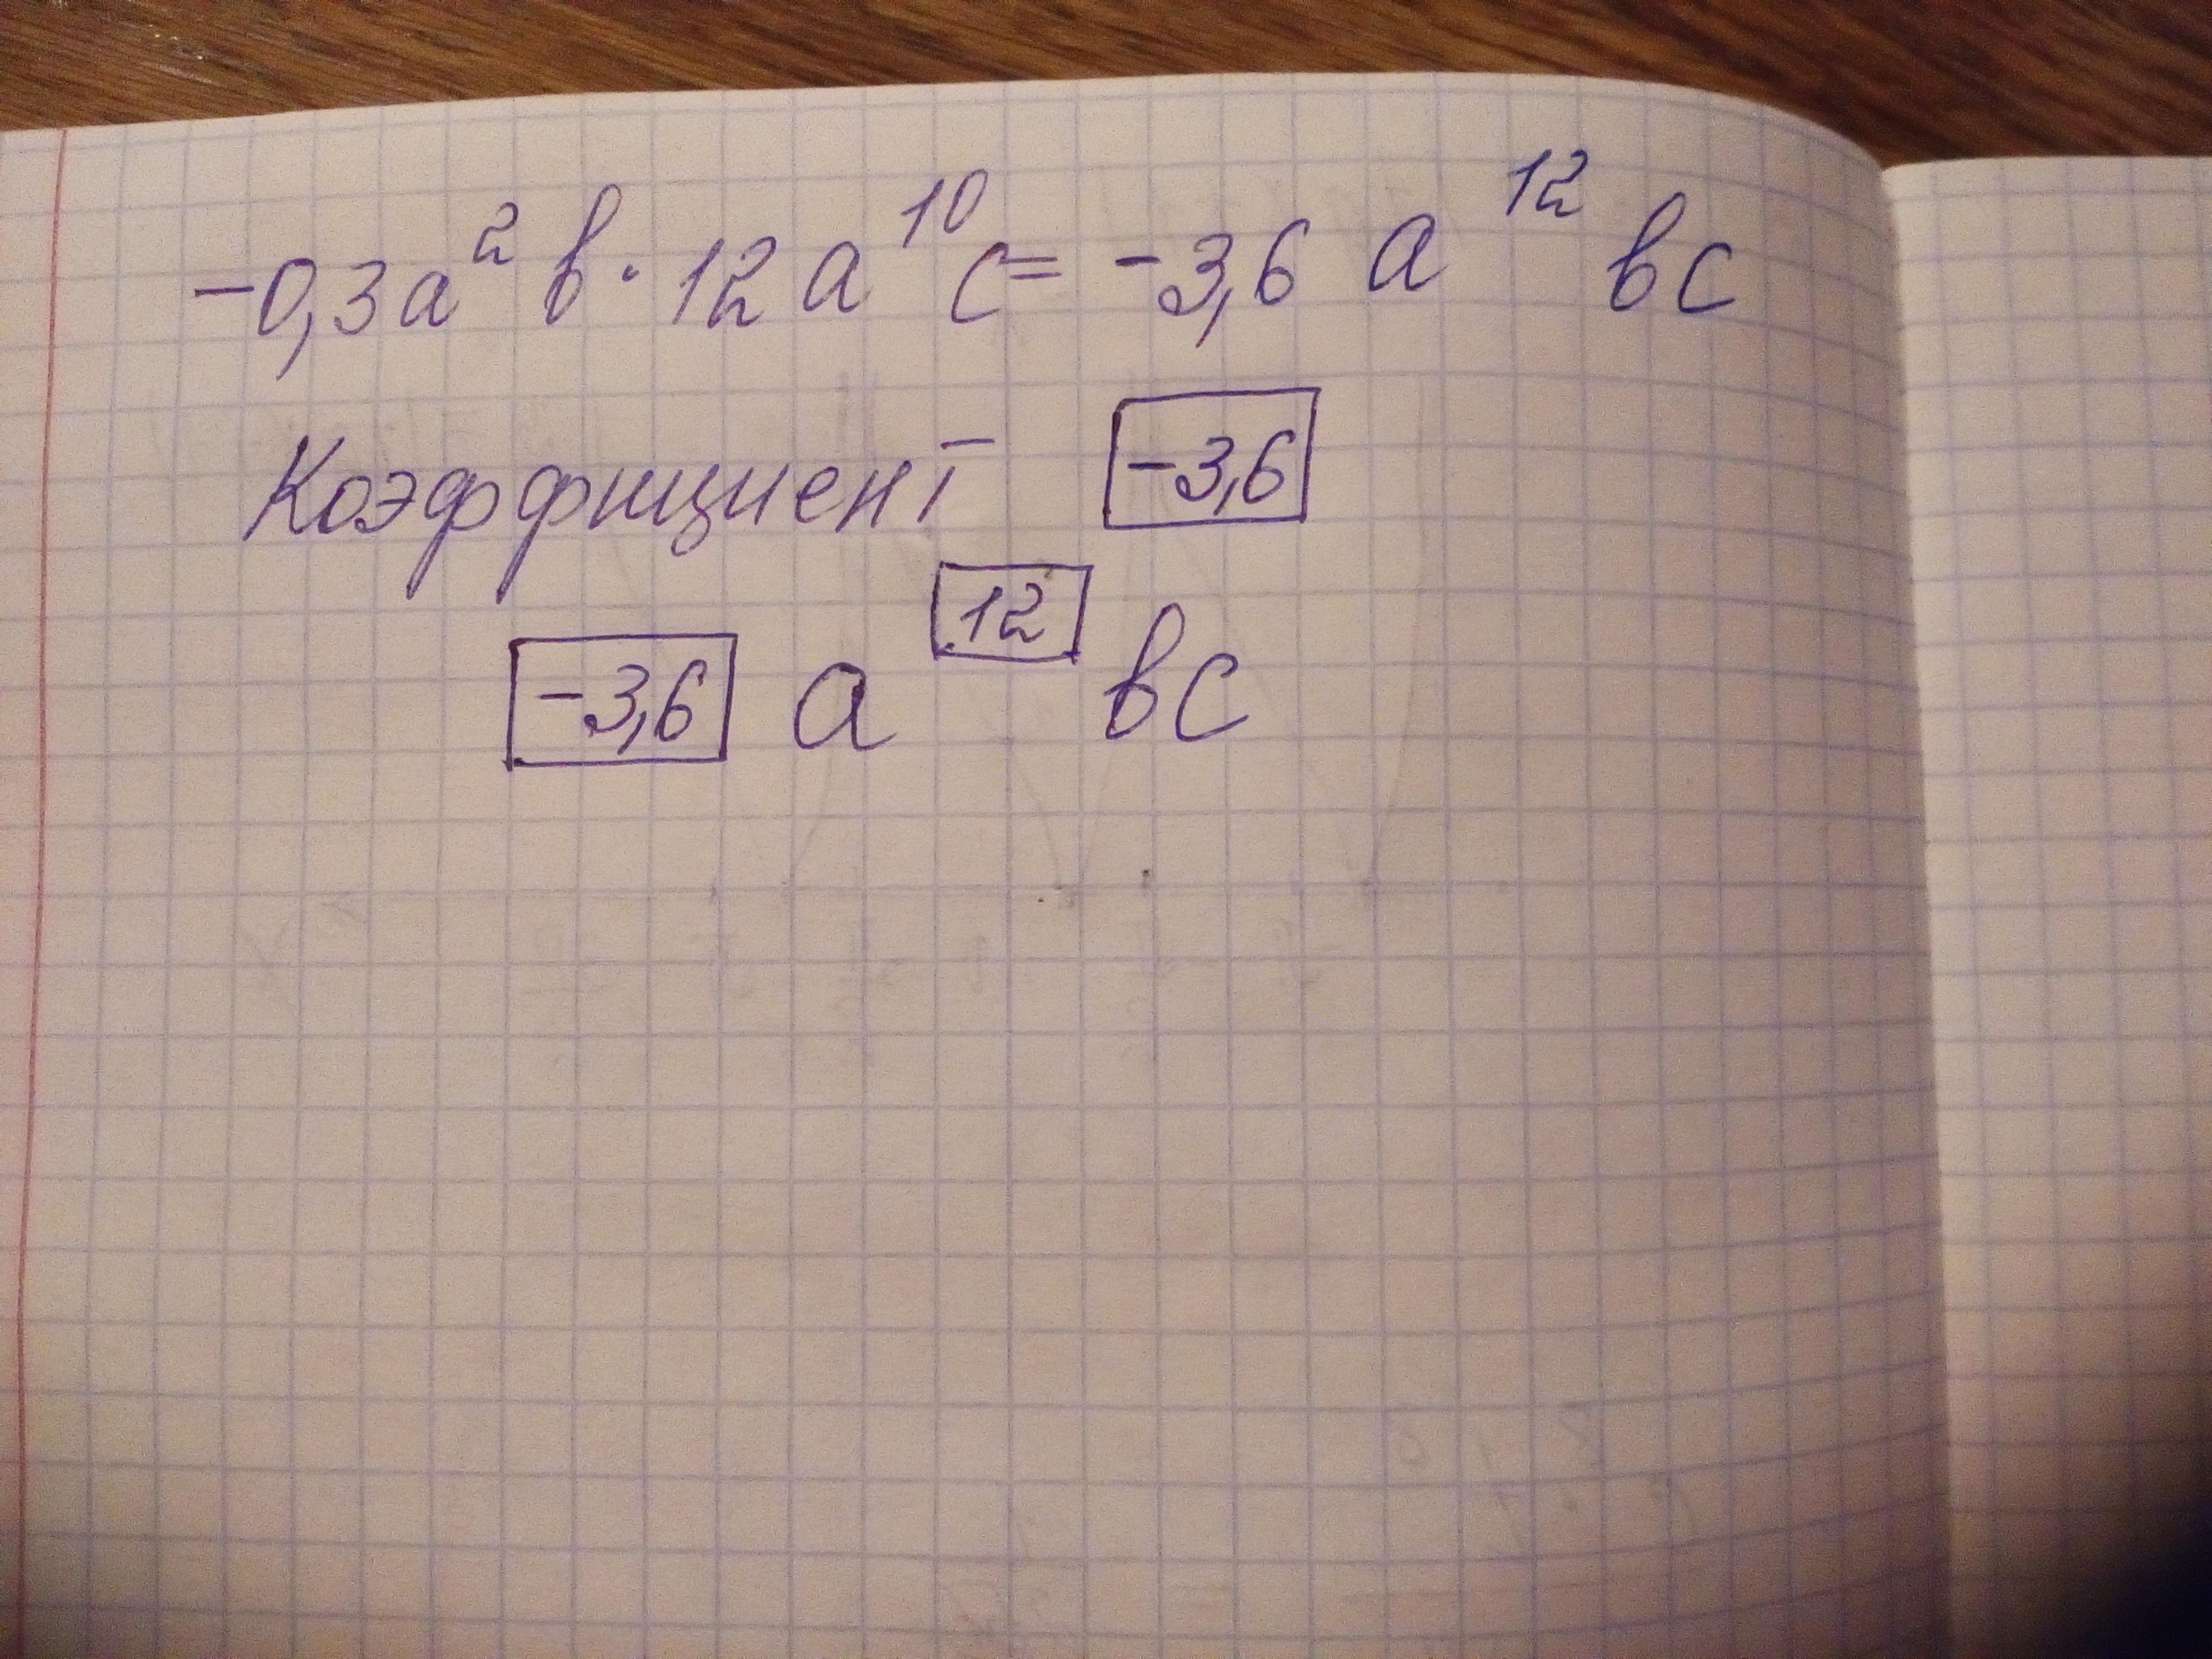 -0,3a² b · 12 a¹⁰ c = -3,6 a¹² bc
Коэффициент -3,6
-3,6 a¹² bc